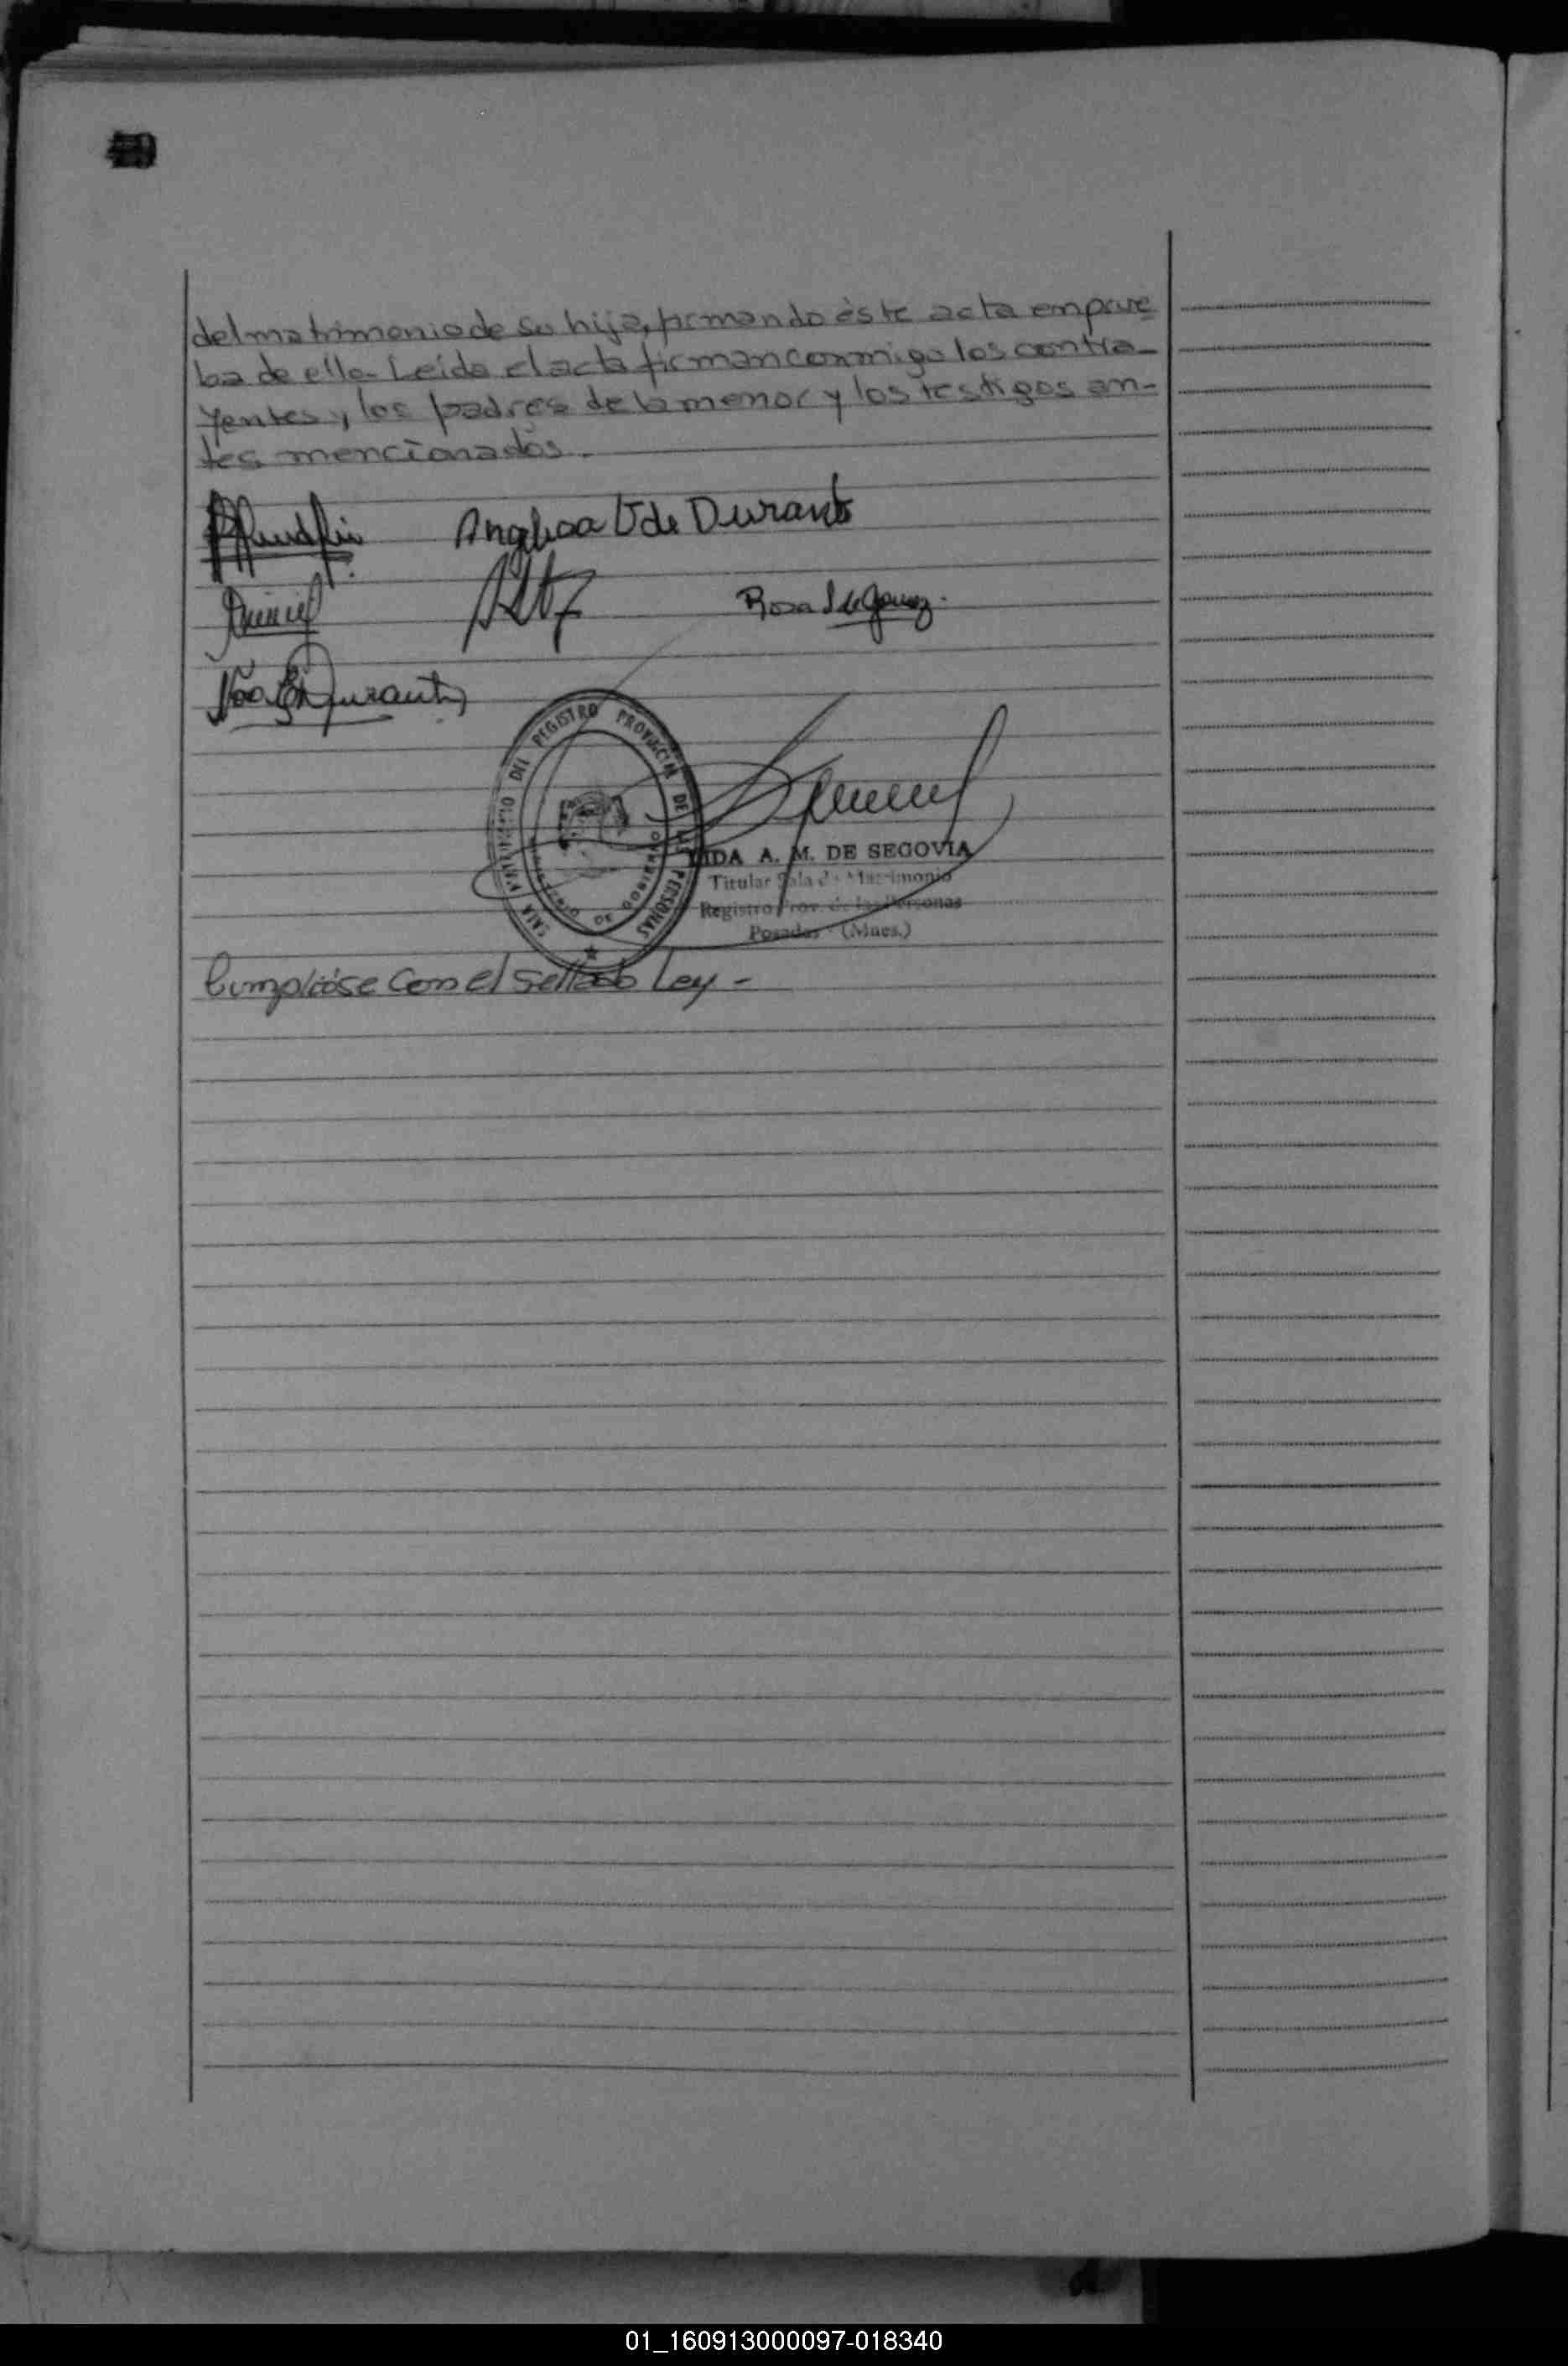 del matrimonio de su hija, firmando éste acta em prue
ba de ello. Leida el acta firman conmigo los contra-
yentes y los padres de la menor y los testigos an-
tes mencionados.
Angelica V de Durant
Rosa de Gomez.
Durant
REGISTRO PROVINCIAL DE LAS PERSONAS
A. M. DE SEGOVIA
Titular Sala de Matrimonio
Registro Prov. de las Personas
Posadas - (Mnes.)
Cumplióse con el sellado Ley -
01_160913000097-018340